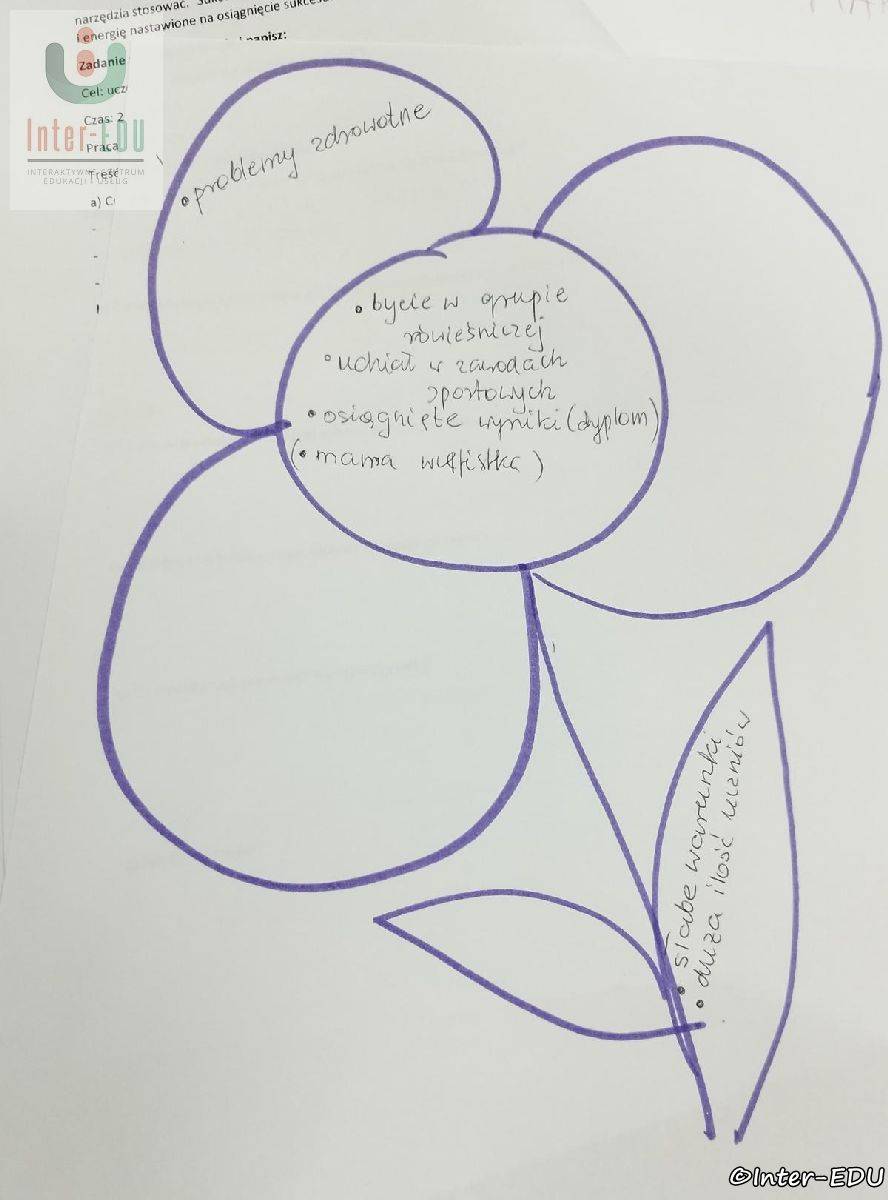 narzędzia stosować.
i energię nastawione na osiągnięcie
Zadanie
Cel: ucz
Czas: 2
Praca
Treść
a)
Inter-EDU
INTERAKTYWNE CENTRUM
EDUKACJI I USŁUG
• problemy zdrowotne
• bycie w grupie
rówieśniczej
• udział w zawodach
sportowych
• osiągnięte wyniki (dyplom)
(• mama wuefistka)
• słabe warunki
• duża ilość uczniów
©Inter-EDU